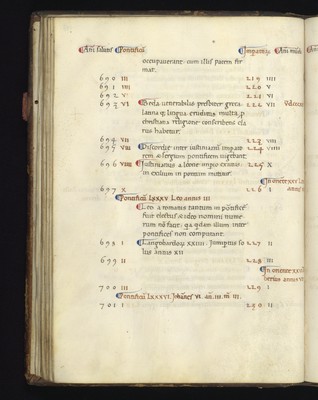 Anni salutis Pontificum Imperatorum Anni mundi
occupauerant cum illis pacem fir
mat.
690 III 219 IIII
691 IIII 220 V
692 V 221 VI
693 VI Beda uenerabilis presbiter greca 222 VII
latina q; lingua eruditus multa p
christiana religione conscribens cla
rus habetur.
694 VII 223 VIII
695 VIII Discordie inter iustinianum impato
rem & sergium pontificem uigebant.
696 VIIII Iustinianus a leone imperio exutus 225 X
in exilium in pontum mittitur.
697 X 226 I
Pontificum LXXXV Leo annis III
Leo a romanis tantum in pontifice
fuit electus & ideo nomini nume
rum non facit. q a quidam illum inter
pontifices non computant.
698 I Langobardoru XXIIII. Iumpertus so 227 II
lus annos XII
699 II 228 III
700 III 229 I
Pontificum LXXXVI. Iohannes VI. an. III. m. III.
701 I 230 II